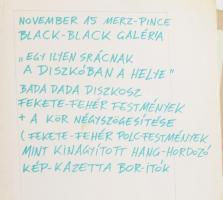 NOVEMBER 15 MERZ-PINCE
BLACK-BLACK GALÉRIA
„EGY ILYEN SRÁCNAK
A DISZKÓBAN A HELYE"
BADA DADA DISZKOSZ
FEKETE-FEHÉR FESTMÉNYEK
+ A KÖR NÉGYSZÖGESÍTÉSE
(FEKETE-FEHÉR POLC-FESTMÉNYEK
MINT KINAGYÍTOTT HANG-HORDOZÓ
KÉP-KAZETTA BOR-ÍTÓK